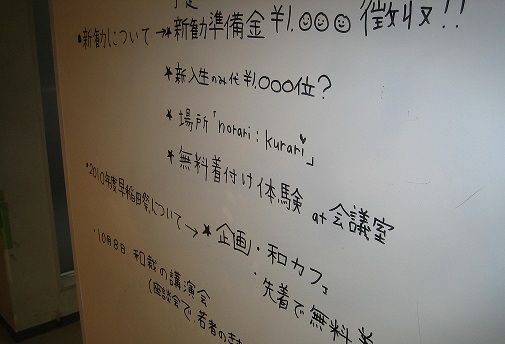 ・新勧について→★新勧準備金 ¥1,000 徴収!!
★新入生のみ代 ¥1,000位?
★場所「norari:kurari」
★無料着付け体験 at 会議室
・2010年度早稲田祭について→★企画・和カフェ
・先着で無料
・10月8日 和裁の講演会
(座談会で、若者の